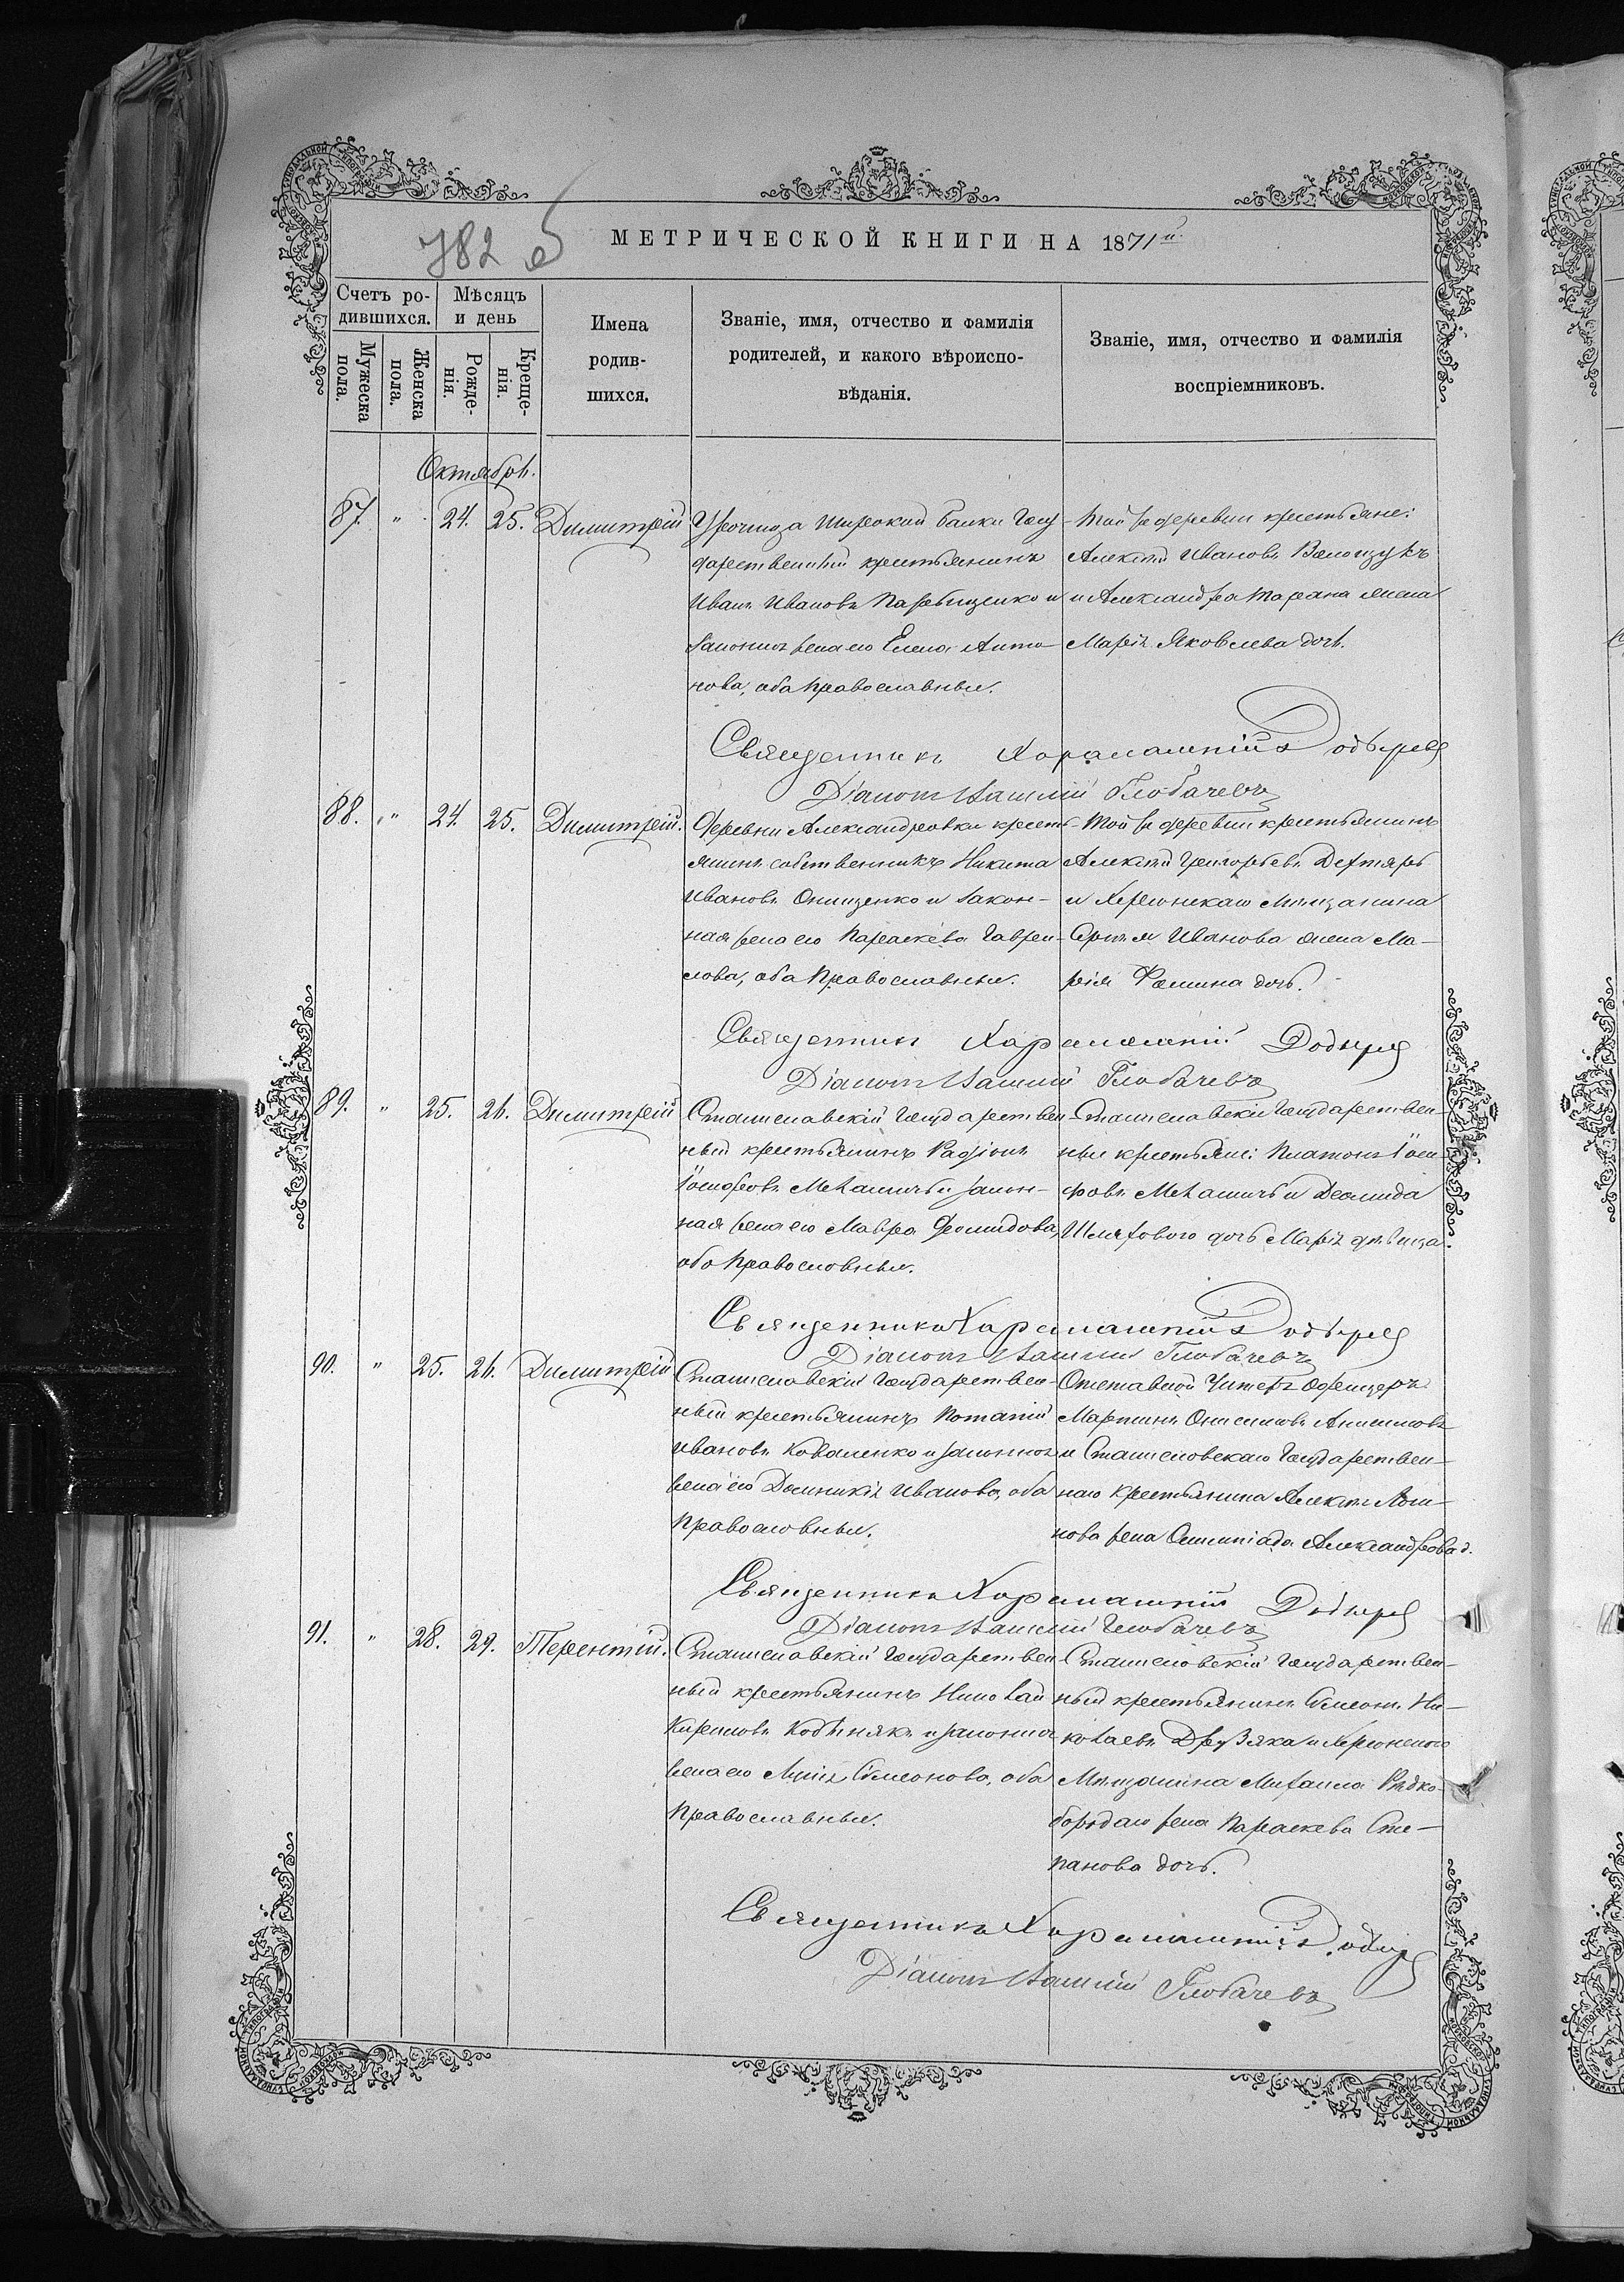 782 б
МЕТРИЧЕСКОЙ КНИГИ НА 1871й
Счетъ ро-
дившихся.
Мѣсяцъ
и день
Мужеска
пола.
Женска
пола.
Рожде-
нія.
Креще-
нія.
Имена
родив-
шихся.
Званіе, имя, отчество и фамилія
родителей, и какого вѣроиспо-
вѣданія.
Званіе, имя, отчество и фамилія
воспріемниковъ.
Октябрь.
87. " 24. 25. Димитрій
Урочища Широкой балки Госу-
дарственный крестьянинъ
Иванъ Ивановъ и
законная жена его Елена Анто-
нова, оба православные.
Той же деревни крестьяне:
Алексѣй Ивановъ
и Александра Тарана жена
Марія Яковлева дочь.
Священникъ Харалампій
Діаконъ Глобачевъ
88. " 24. 25. Димитрій.
Деревни Александровки кресть-
янинъ собственникъ Никита
Ивановъ Онищенко и закон-
ная жена его Параскева Гаври-
лова, оба православные.
Той же деревни крестьянинъ
Алексѣй Григорьевъ Дехтярь
и Херсонскаго мѣщанина
Сергѣя Иванова жена Ма-
рія Фомина дочь.
Священникъ Харалампій
Діаконъ Глобачевъ
89. " 25. 26. Димитрій
Станиславскій Государствен-
ный крестьянинъ Радіонъ
Іосифовъ и закон-
ная жена его Мавра Деомидова,
оба православные.
Станиславскіе Государствен-
ные крестьяне: Платонъ Іоси-
фовъ и Деомида
Шляхового дочь Марія дѣвица.
Священникъ Харалампій
Діаконъ Глобачевъ
90. " 25. 26. Димитрій
Станиславскій Государствен-
ный крестьянинъ Потапій
Ивановъ Коваленко и законная
жена его Домникія Иванова, оба
православные.
Отставной Унтеръ Офицеръ
Мартинъ Онисимовъ Анисимовъ
и Станиславскаго Государствен-
наго крестьянина Алексѣя
нова жена Олимпіада Александрова д.
Священникъ Харалампій
Діаконъ Глобачевъ
91. " 28. 29. Терентій.
Станиславскій Государствен-
ный крестьянинъ Николай
Кириловъ Кобзнякъ и законная
жена его Симеонова, оба
православные.
Станиславскій Государствен-
ный крестьянинъ Симеонъ Ни-
колаевъ Друзяка и Херсонскаго
мѣщанина Михаила Рѣдко-
бородаго жена Параскева Сте-
панова дочь.
Священникъ Харалампій
Діаконъ Глобачевъ